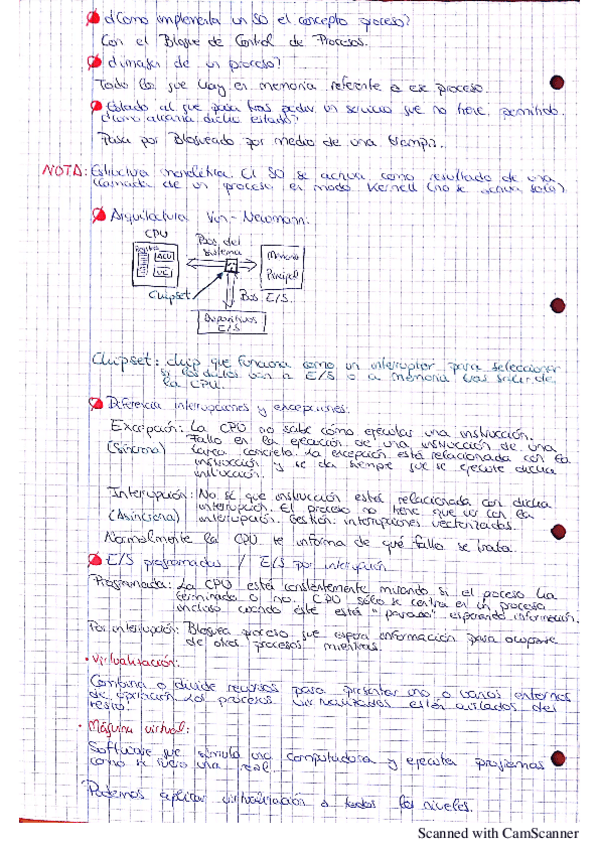 ¿Cómo implementa un SO el concepto proceso?
Con el Bloque de Control de Procesos.
¿Imagen de un proceso?
Todo lo que hay en memoria referente a ese proceso.
Estado al que pasa tras pedir un servicio que no tiene permitido.
¿Cómo alcanza dicho estado?
Pasa por Bloqueado por medio de una trampa.
NOTA: Estructura monolítica. El SO se activa como resultado de una
llamada de un proceso en modo Kernell (no se activa solo).
Arquitectura Von-Newmann:
CPU
Bus del
Sistema
Memoria
Principal
ALU
UC
Chipset
Bus E/S.
Dispositivos
E/S
Chipset: chip que funciona como un interruptor para seleccionar
si los datos van a E/S o a memoria tras salir de
la CPU.
Diferencia interrupciones y excepciones:
Excepción: La CPU no sabe cómo ejecutar una instrucción.
Fallo en la ejecución de una instrucción de una
(Síncrona) tarea concreta. La excepción está relacionada con la
instrucción y se da siempre que se ejecute dicha
instrucción.
Interrupción: No sé que instrucción está relacionada con dicha
interrupción. El proceso no tiene que ver con la
(Asíncrona) interrupción. Gestión: interrupciones vectorizadas.
Normalmente la CPU te informa de qué fallo se trata.
E/S programadas / E/S por interrupción.
Programada: La CPU está constantemente mirando si el proceso ha
terminado o no. CPU sólo se centra en un proceso
incluso cuando éste está "parado" esperando información.
Por interrupción: Bloquea proceso que espera información para ocuparse
de otros procesos mientras.
• Virtualización:
Combina o divide recursos para presentar uno o varios entornos
de operación. Los procesos virtualizados están aislados del
resto.
• Máquina virtual:
Software que simula una computadora y ejecuta programas
como si fuera una real.
Podemos aplicar virtualización a todos los niveles.
Scanned with CamScanner